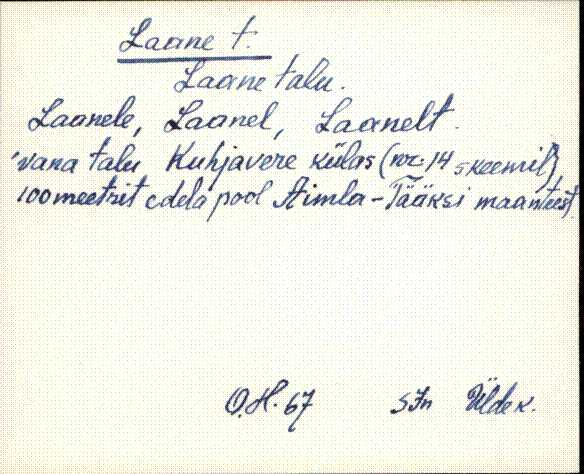 Laane t.
Laane talu.
Laanele, Laanel, Laanelt.
'vana talu Kuhjavere külas (nr. 14 skeemil),
100 meetrit edela pool Aimla-Tääksi maanteest,
O.H. 67 SJn Üldek.